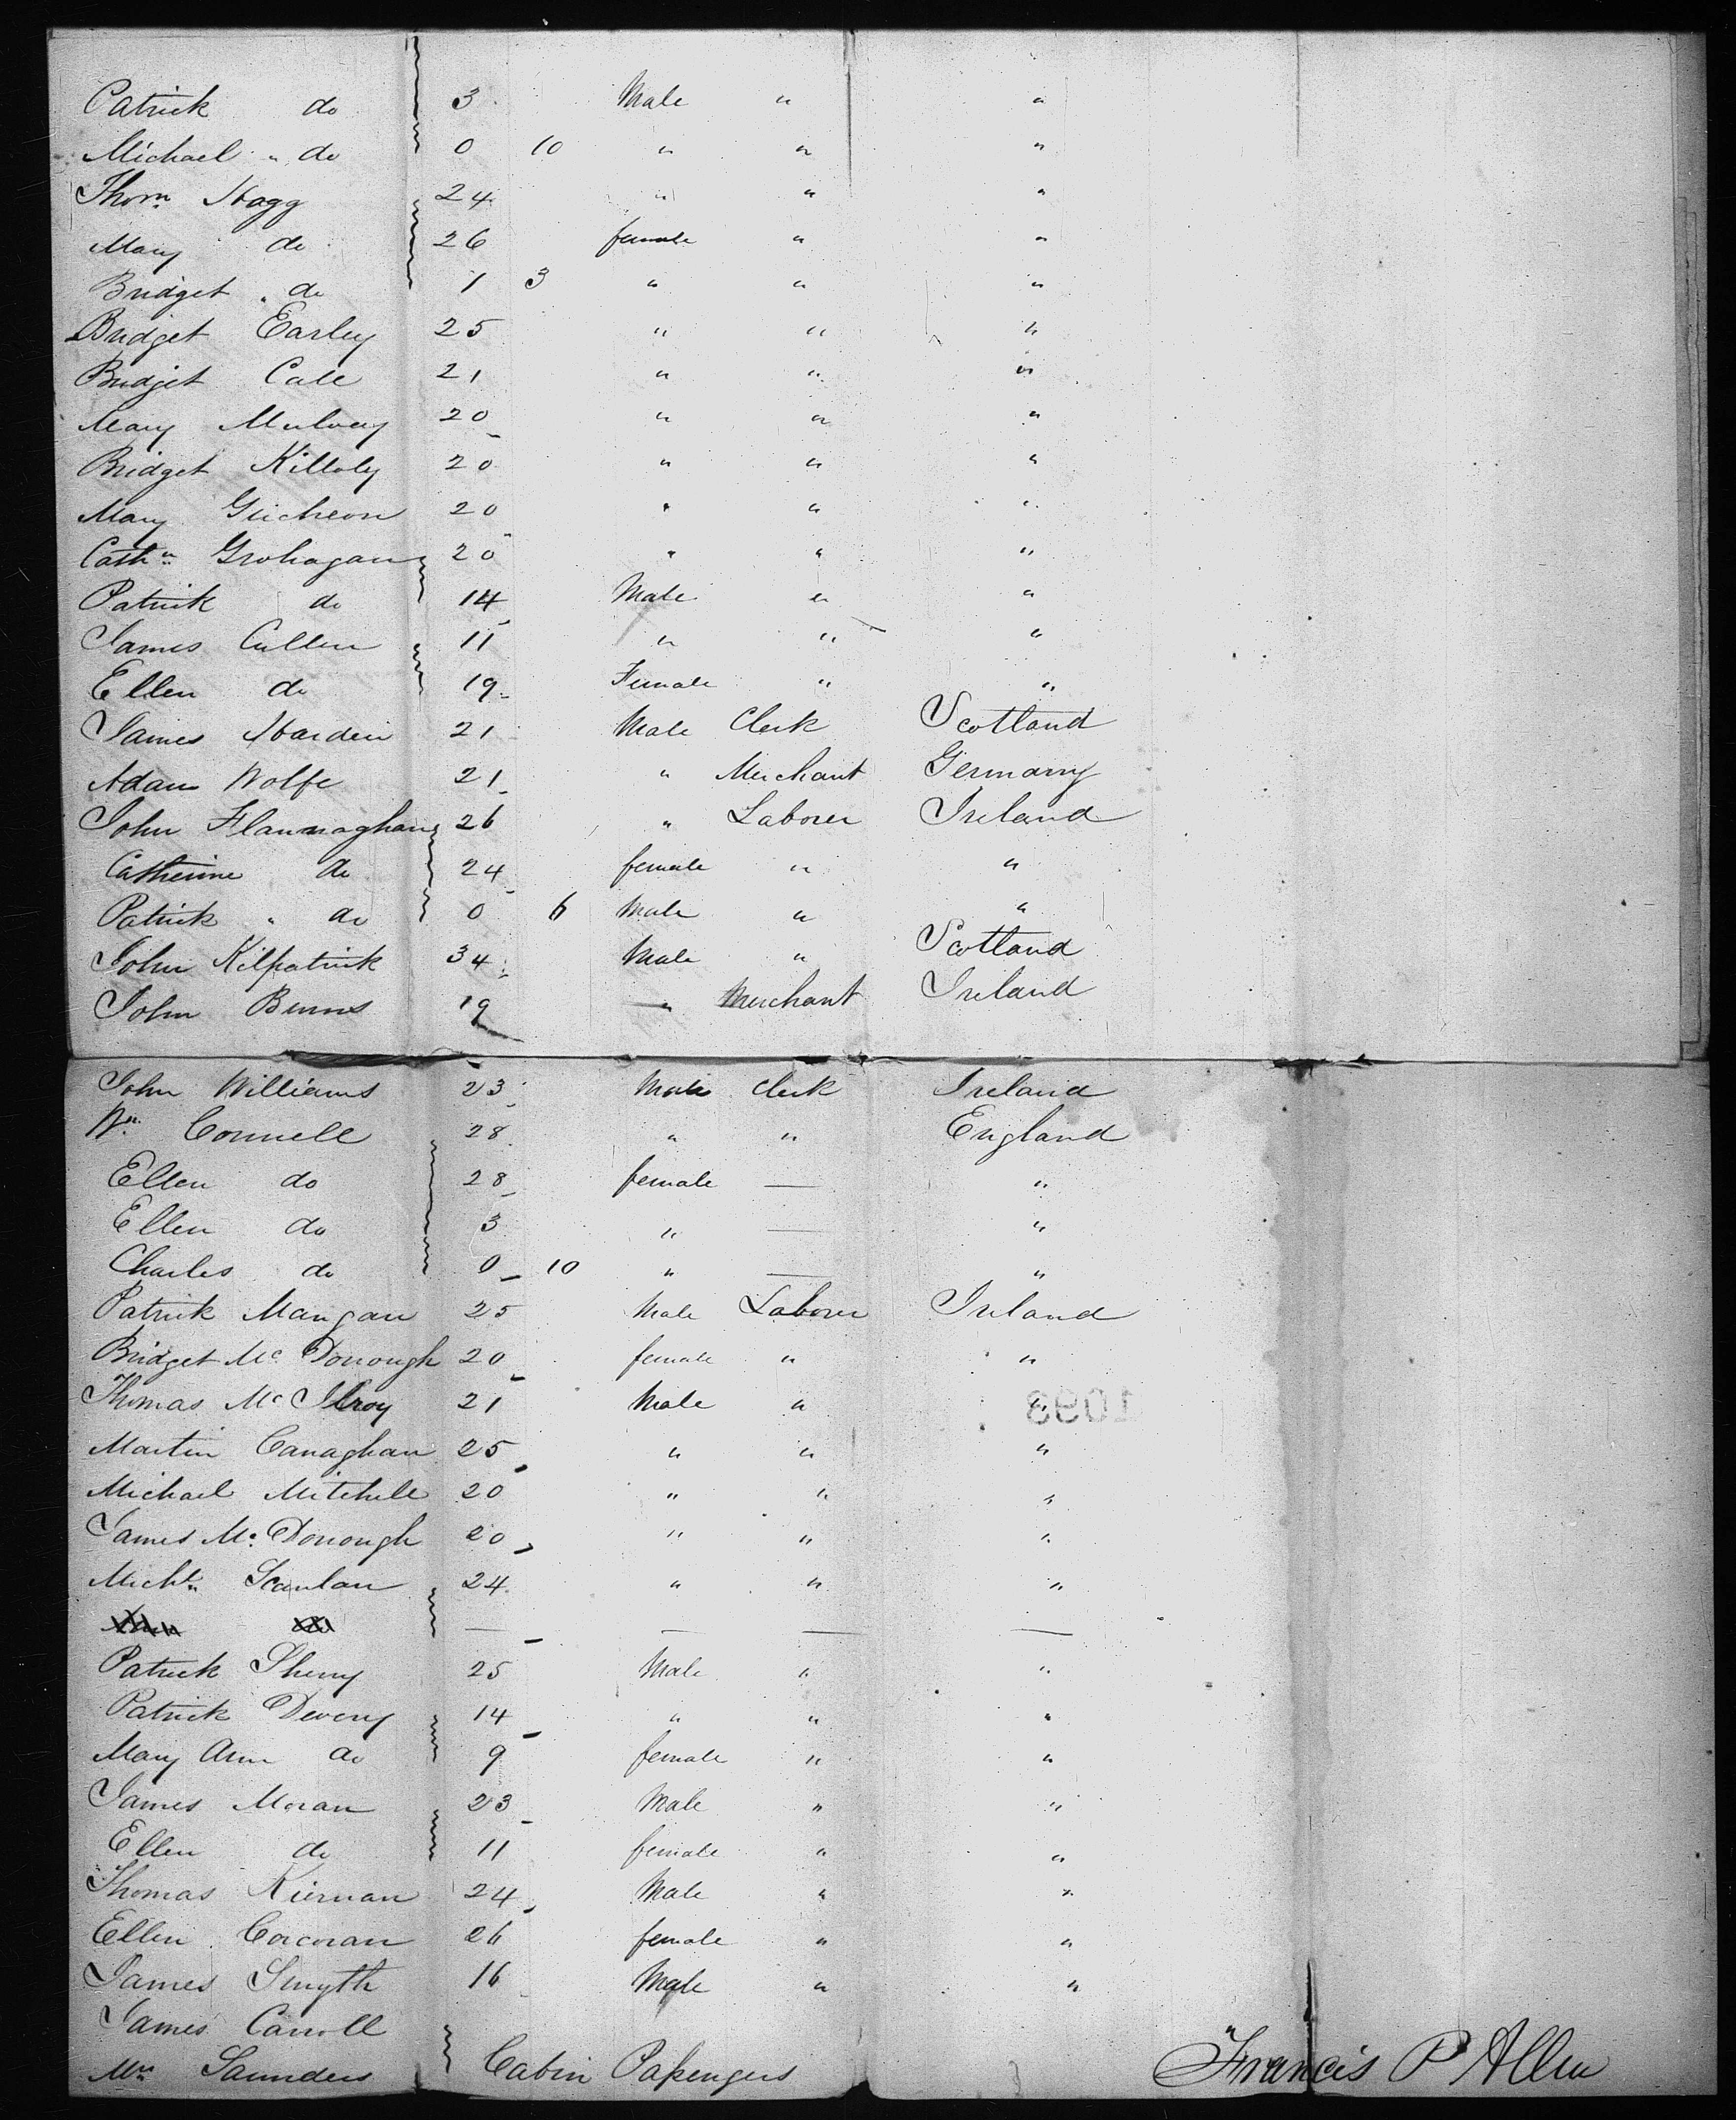 Patrick do 3 Male " "
Michael " do 0 10 " " "
Thom Hagg 24 " " "
Mary do 26 female " "
Bridget " do 1 3 " " "
Bridget Earley 25 " " "
Bridget Cale 21 " " "
Mary Mulvey 20 " " "
Bridget Killoly 20 " " "
Mary 20 " " "
Cathn Grohagan 20 " " "
Patrick do 14 Male " "
James Cullen 11 " " "
Ellen do 19 Female " "
James Harden 21 Male Clerk Scotland
Adam Wolfe 21 " Merchant Germany
John Flannaghan 26 " Laborer Ireland
Catherine do 24 female " "
Patrick " do 0 6 Male " "
John Kilpatrick 34 Male " Scotland
John Burns 19 " Merchant Ireland
John Williams 23 Male Clerk Ireland
Wm Connell 28 " " England
Ellen do 28 female — "
Ellen do 3 " — "
Charles do 0 10 " — "
Patrick Mangan 25 Male Laborer Ireland
Bridget McDonough 20 female " "
Thomas McIlroy 21 Male " "
1093
Martin Canaghan 25 " " "
Michael Mitchell 20 " " "
James McDonough 20 " " "
Michl Scanlan 24 " " "
— — — —
Patrick Sherry 25 Male " "
Patrick Deveny 14 " " "
Mary Ann do 9 female " "
James Moran 23 Male " "
Ellen do 11 female " "
Thomas Kiernan 24 Male " "
Ellen Corcoran 26 female " "
James Smyth 16 Male " "
James Carroll
Saunders Cabin Passengers
Francis P Allen